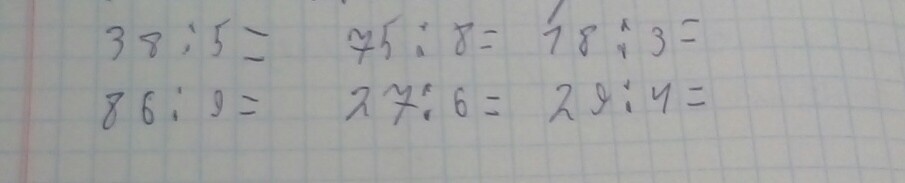 38 : 5 = 75 : 8 = 18 : 3 =
86 : 9 = 27 : 6 = 29 : 4 =